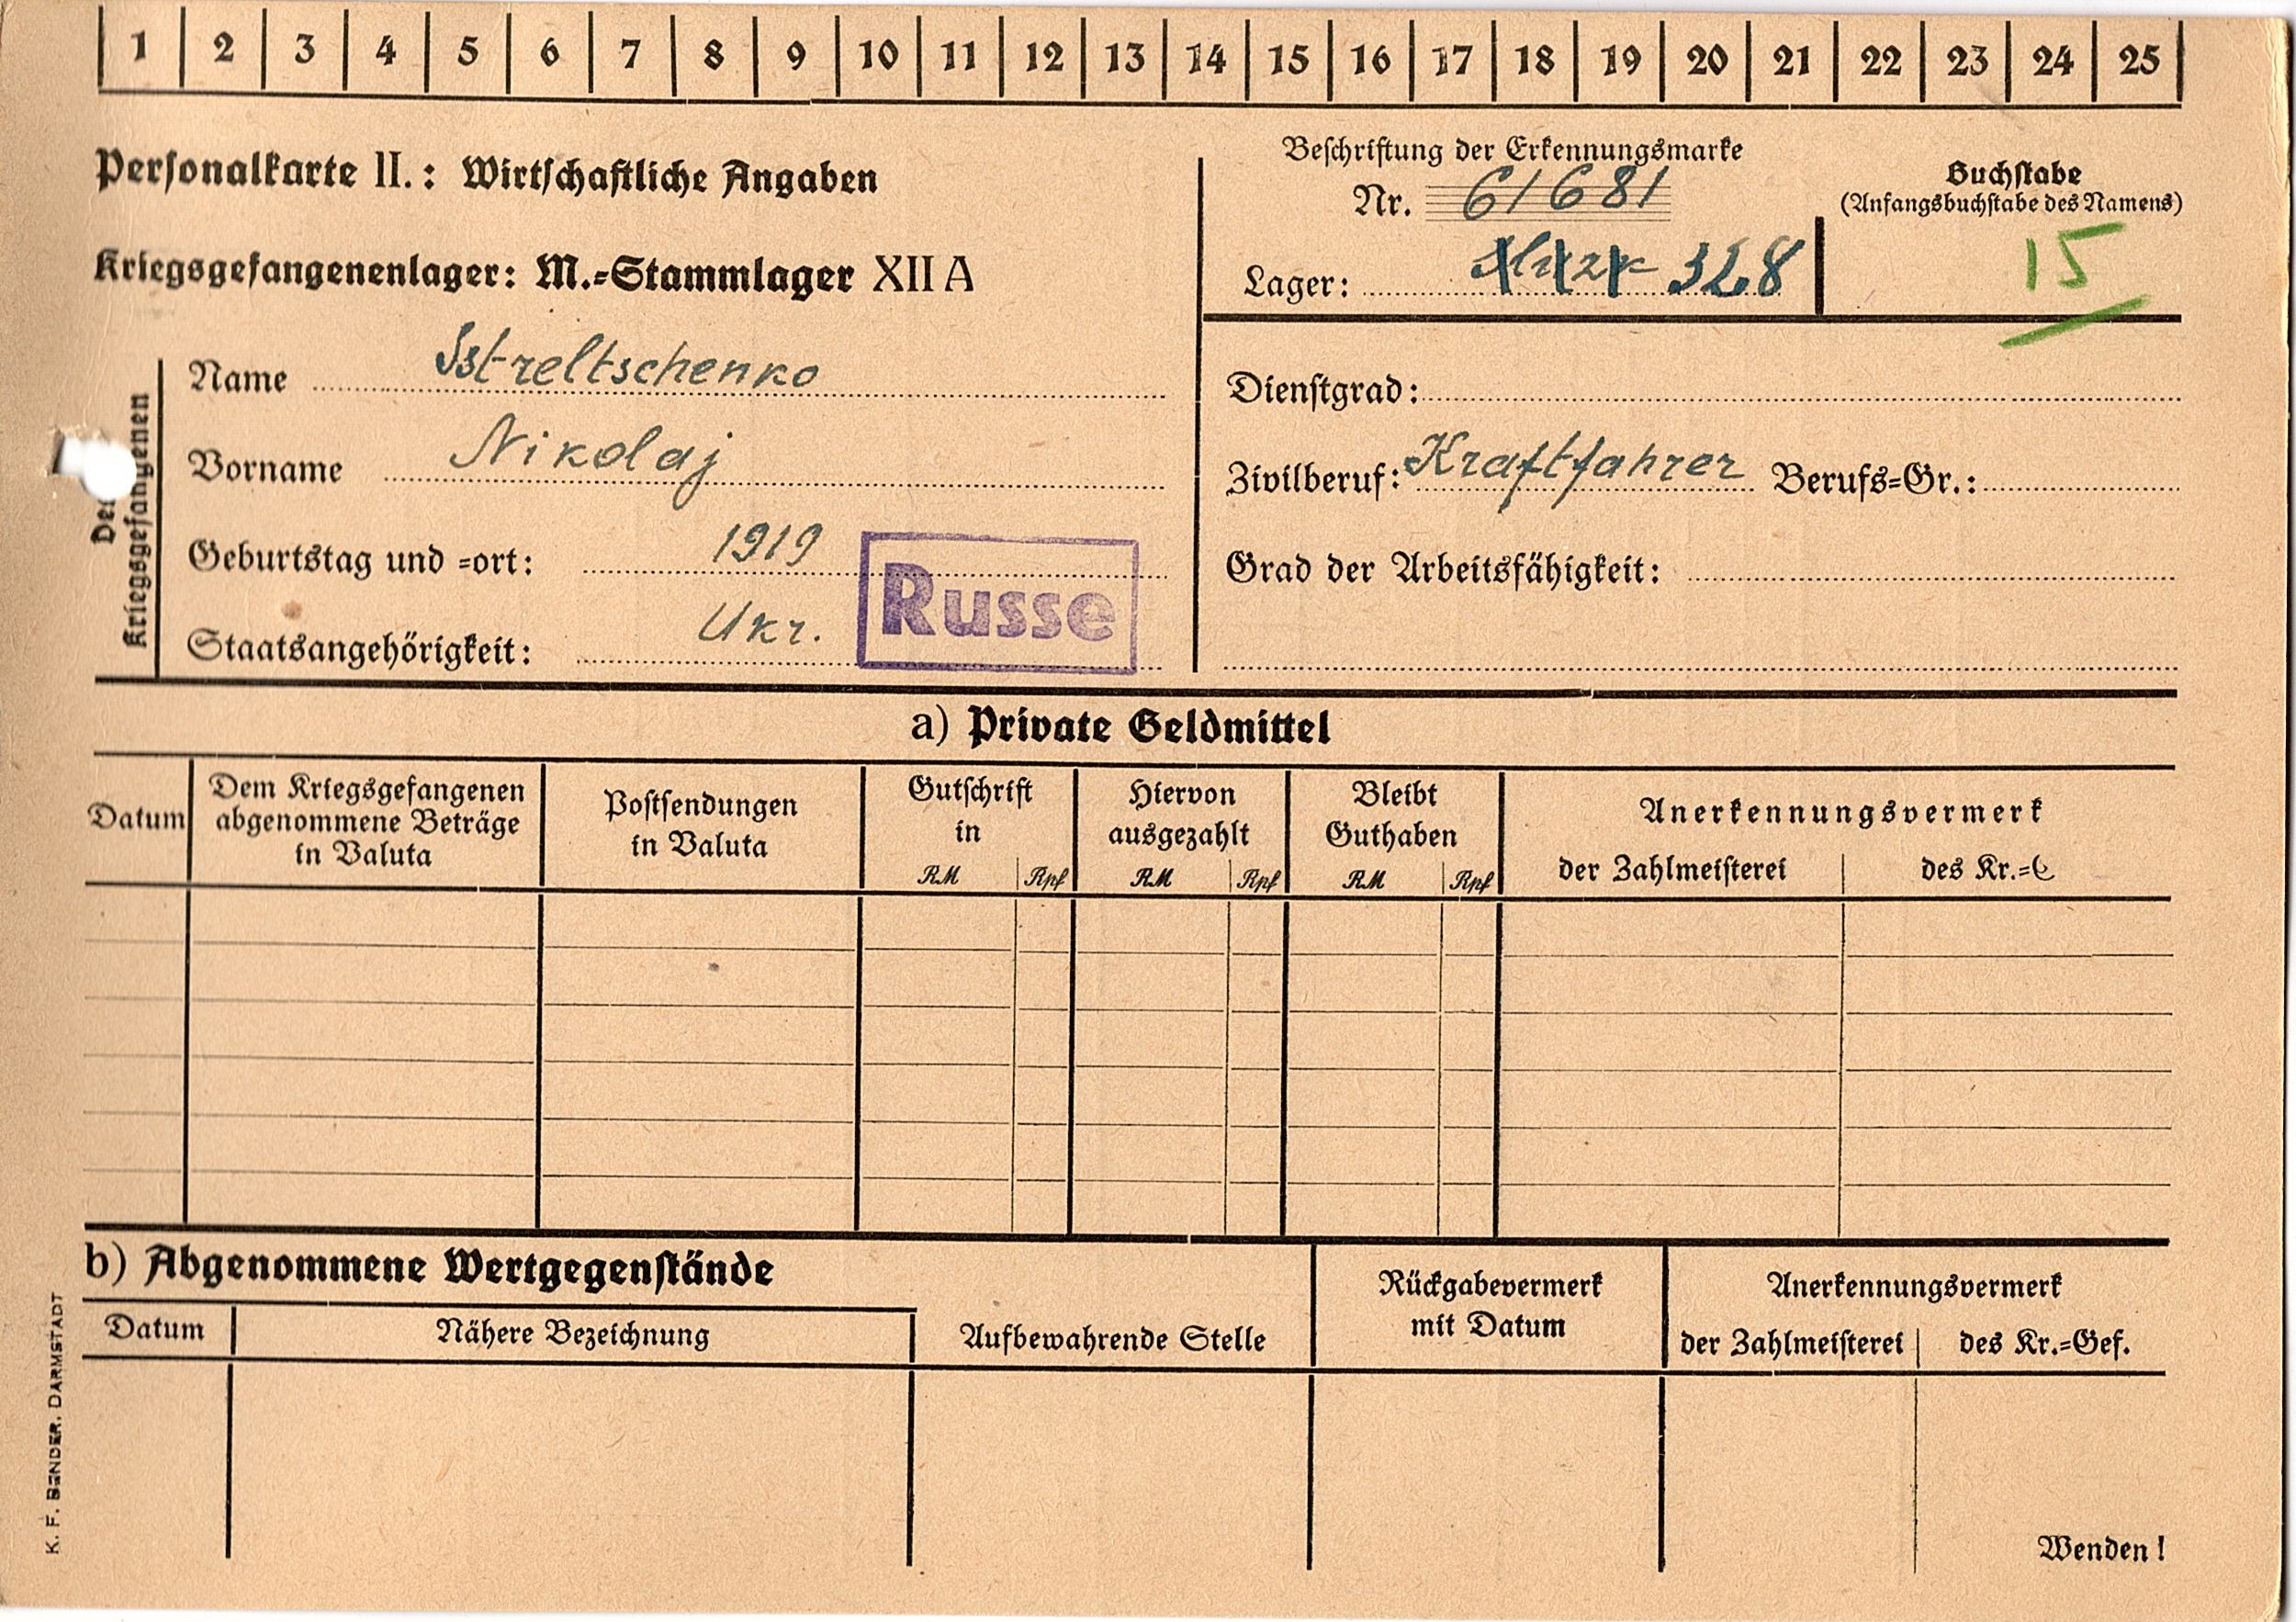 1 2 3 4 5 6 7 8 9 10 11 12 13 14 15 16 17 18 19 20 21 22 23 24 25
Personalkarte II.: Wirtschaftliche Angaben
Kriegsgefangenenlager: M.-Stammlager XII A
Beschriftung der Erkennungsmarke
Nr. 61681
Lager: 328
Buchstabe
(Anfangsbuchstabe des Namens)
15
Kriegsgefangenen
Name Sstreltschenko
Vorname Nikolaj
Geburtstag und =ort: 1919
Staatsangehörigkeit: Ukr.
Russe
Dienstgrad:
Zivilberuf: Kraftfahrer Berufs=Gr.:
Grad der Arbeitsfähigkeit:
a) Private Geldmittel
Datum
Dem Kriegsgefangenen
abgenommene Beträge
in Valuta
Postsendungen
in Valuta
Gutschrift
in
RM Rpf
Hiervon
ausgezahlt
RM Rpf
Bleibt
Guthaben
RM Rpf
Anerkennungsvermerk
der Zahlmeisterei des Kr.=
b) Abgenommene Wertgegenstände
Datum Nähere Bezeichnung
Aufbewahrende Stelle
Rückgabevermerk
mit Datum
Anerkennungsvermerk
der Zahlmeisterei des Kr.=Gef.
K. F. BENDER, DARMSTADT
Wenden!